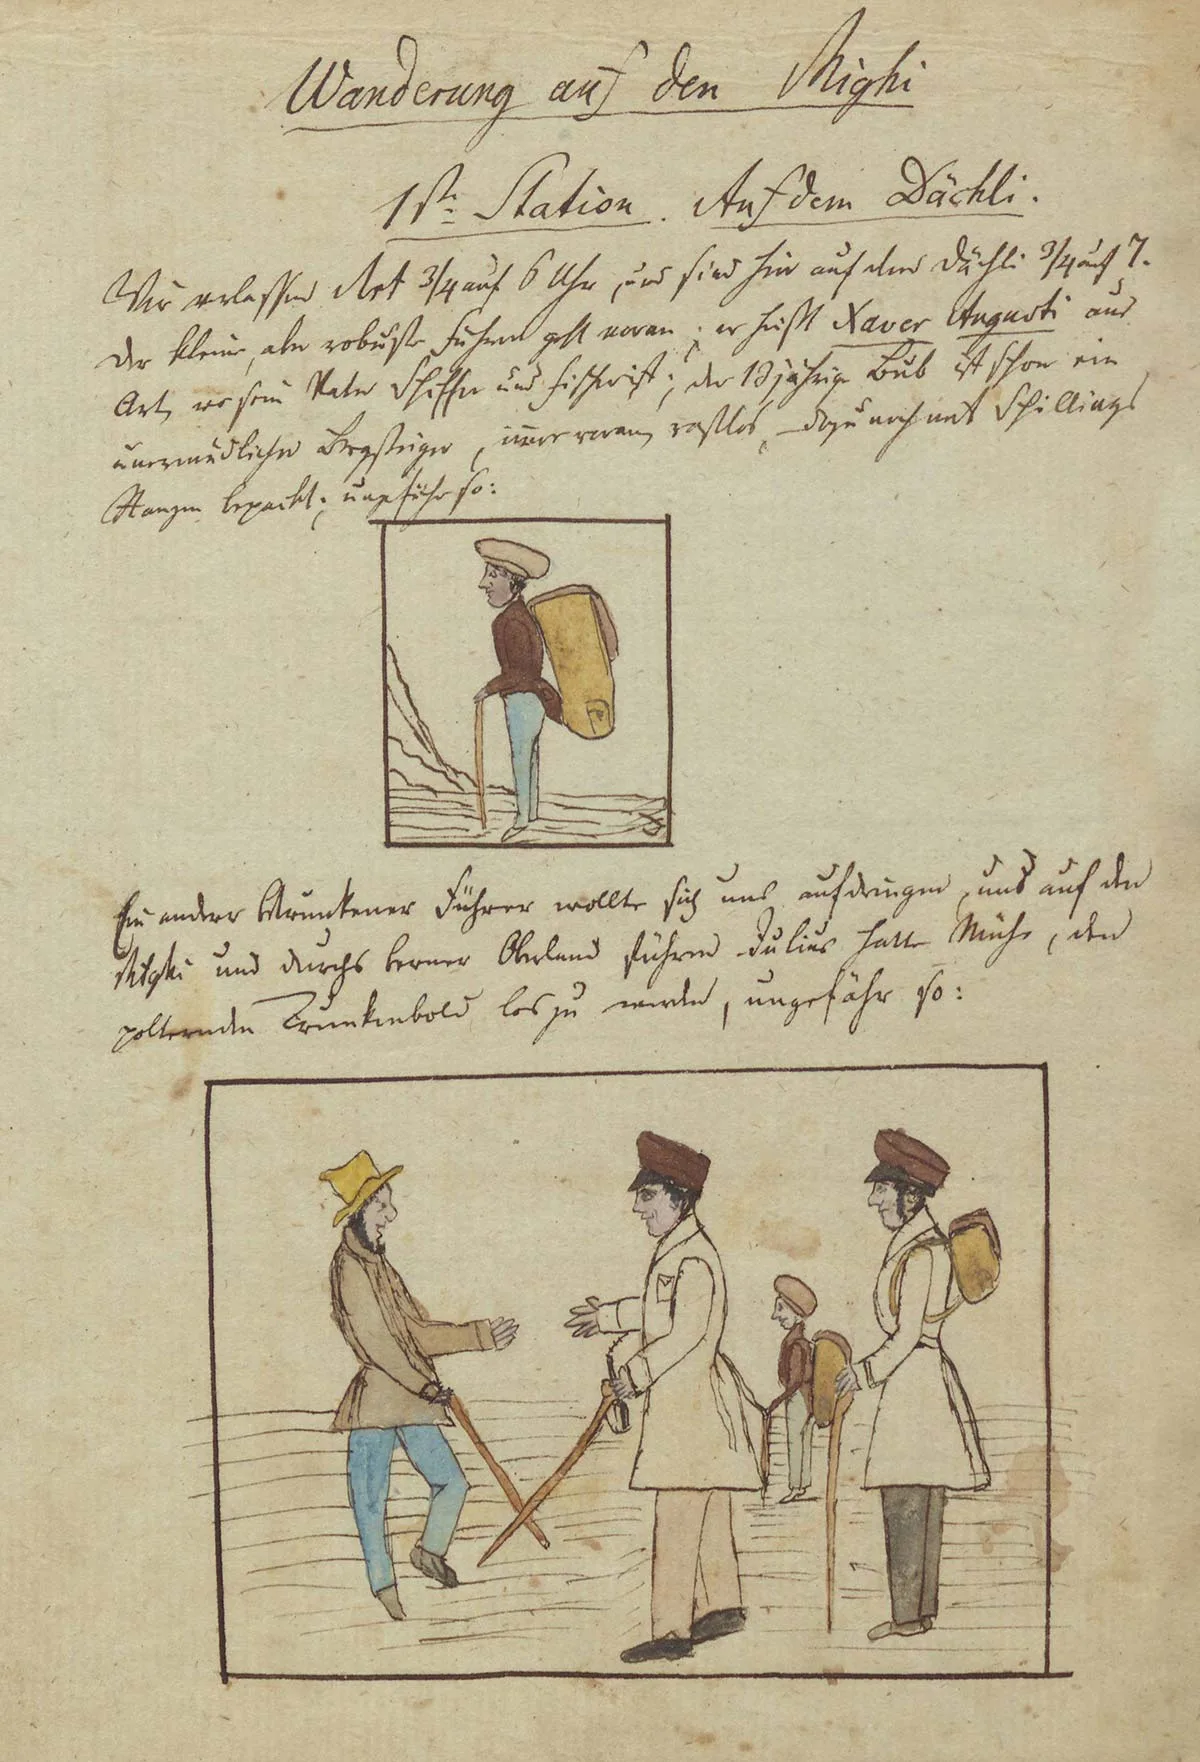 Wanderung auf den Righi
1ste Station. Auf dem Dächli.
Wir verlassen Art 3/4 auf 6 Uhr, und sind hier auf dem Dächli 3/4 auf 7.
Der kleine, aber robuste Führer geht voran; er heißt Xaver Augusti aus
Art, wo sein Vater Schiffer und Fischer ist; der 13jährige Bub ist schon ein
unermüdlicher Bergsteiger, immer voran, rastlos, dazu noch mit Schillings
Ranzen bepackt; ungefähr so:
Ein andrer betrunkener Führer wollte sich uns aufdringen, uns auf den
Righi und durchs berner Oberland führen. Julius hatte Mühe, den
polternden Trunkenbold los zu werden, ungefähr so: